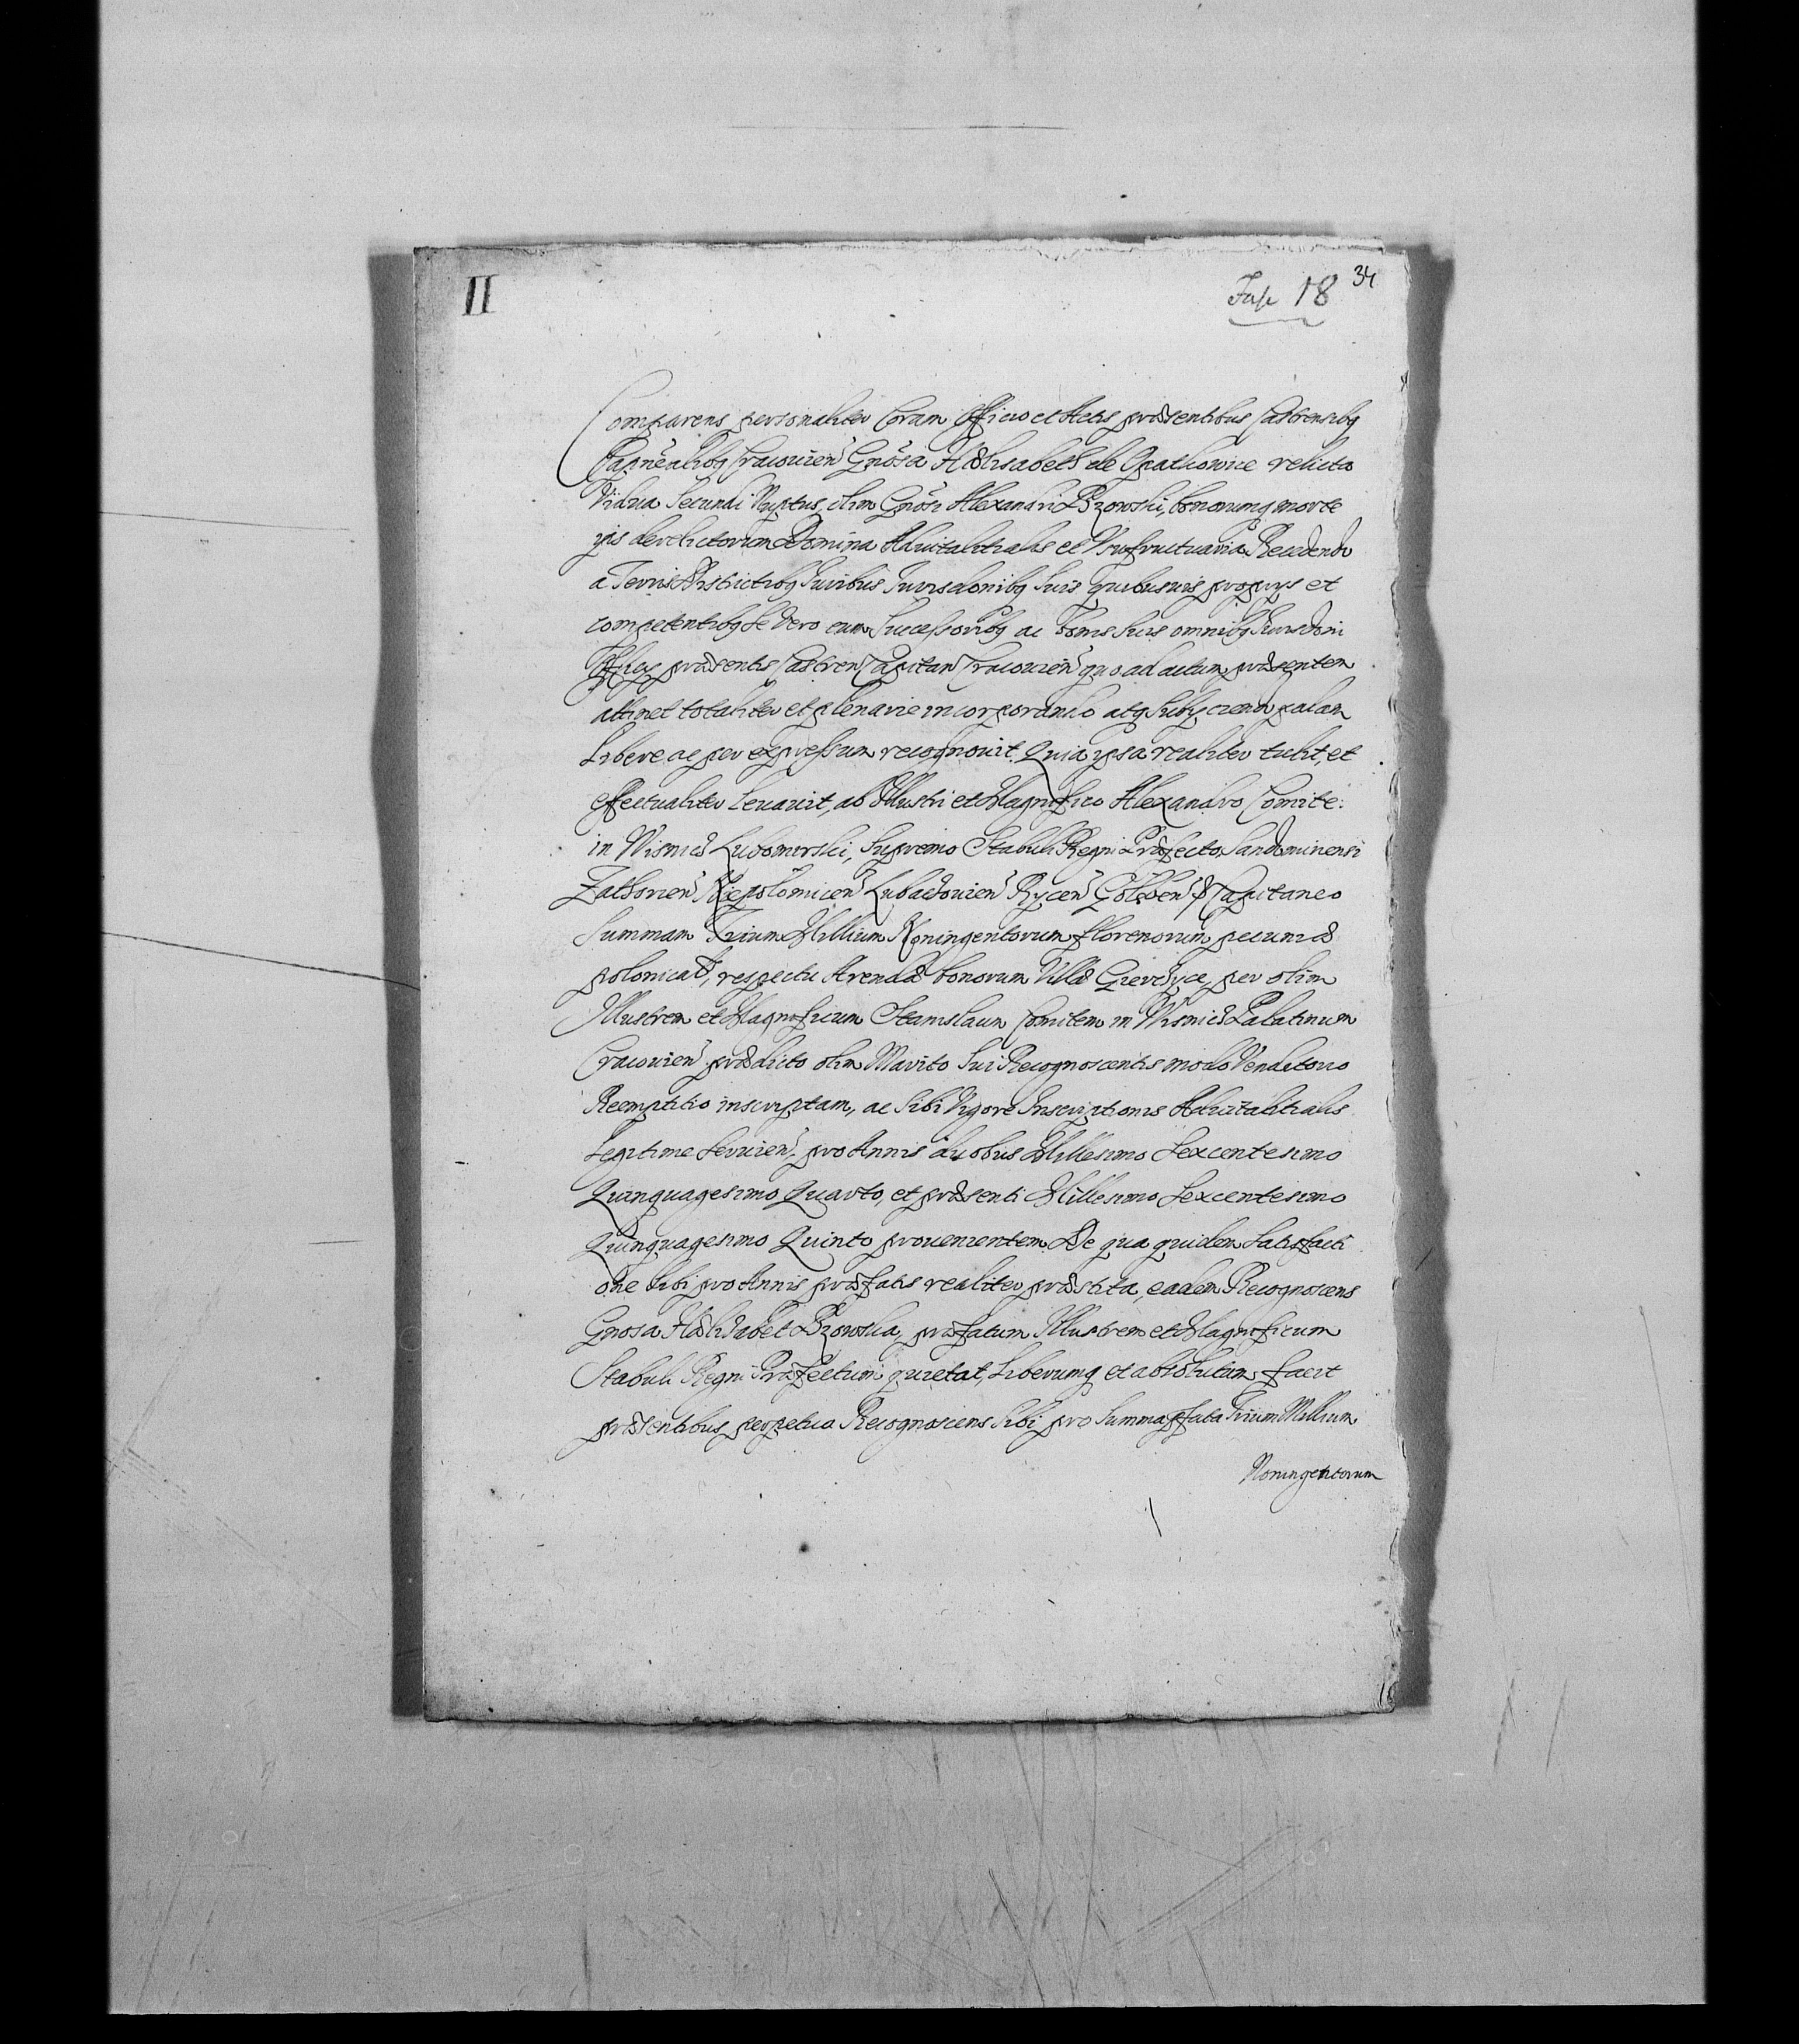 II
Fasc 18 34
Comparens personaliter Coram Officio et Actis præsentibus Castrensibq
Capnealibq Cracovien Gnosa Hælisabeth de Opatkowice relicta
Vidua Secundi Nuptus, olim Gnosi Alexandri Bzowski, bonorumq morte
ipsis derelictorum Domina Advitalitialis et Vsufructuaria Recedendo
a Terris Districtibq Iuribus Iurisdonibq Suis quibusvis proprys et
competentibq Se Vero cum Successoribq ac bonis Suis omnibq Iurisdoni
Officy præsentis Castren Capitan Cracovien quo ad actum præsentem
attinet totaliter et plenarie incorporando atq Subyciendo palam
Libere ac per expressum recognovit. Quia ipsa realiter tulit, et
effectualiter Levavit, ab Illustri et Magnifico Alexandro Comite
in Wisnicz Lubomirski, Supremo Stabuli Regni Præfecto Sandomiriensi
Zathorien Niepolomicen Lubaczovien Rycen & Capitaneo
Summam Trium Millium Noningentorum florenorum pecuniæ
polonicæ, respectu Arendæ bonorum Villæ Gierczyce, per olim
Illustrem et Magnificum Stanislaum Comitem in Wisnicz Palatinum
Cracovien prædicto olim Marito Sui Recognoscentis modo Venditorio
Reemptitio inscriptam, ac Sibi Vigore Inscriptionis Advitalitialis
Legitime Servien, pro Annis duobus Millesimo Sexcentesimo
Quinquagesimo Quarto, et præsenti Millesimo Sexcentesimo
Quinquagesimo Quinto provenientem De qua quidem Satisfacti
one Sibi pro Annis præfatis realiter præstita, eadem Recognoscens
Gnosa Hælisabet Bzowska, præfatum Illustrem et Magnificum
Stabuli Regni Præfectum quietat, Liberumq et absolutum facit
præsentibus perpetuo Recognoscens Sibi pro Summa pfata Trium Millium
Noningentorum